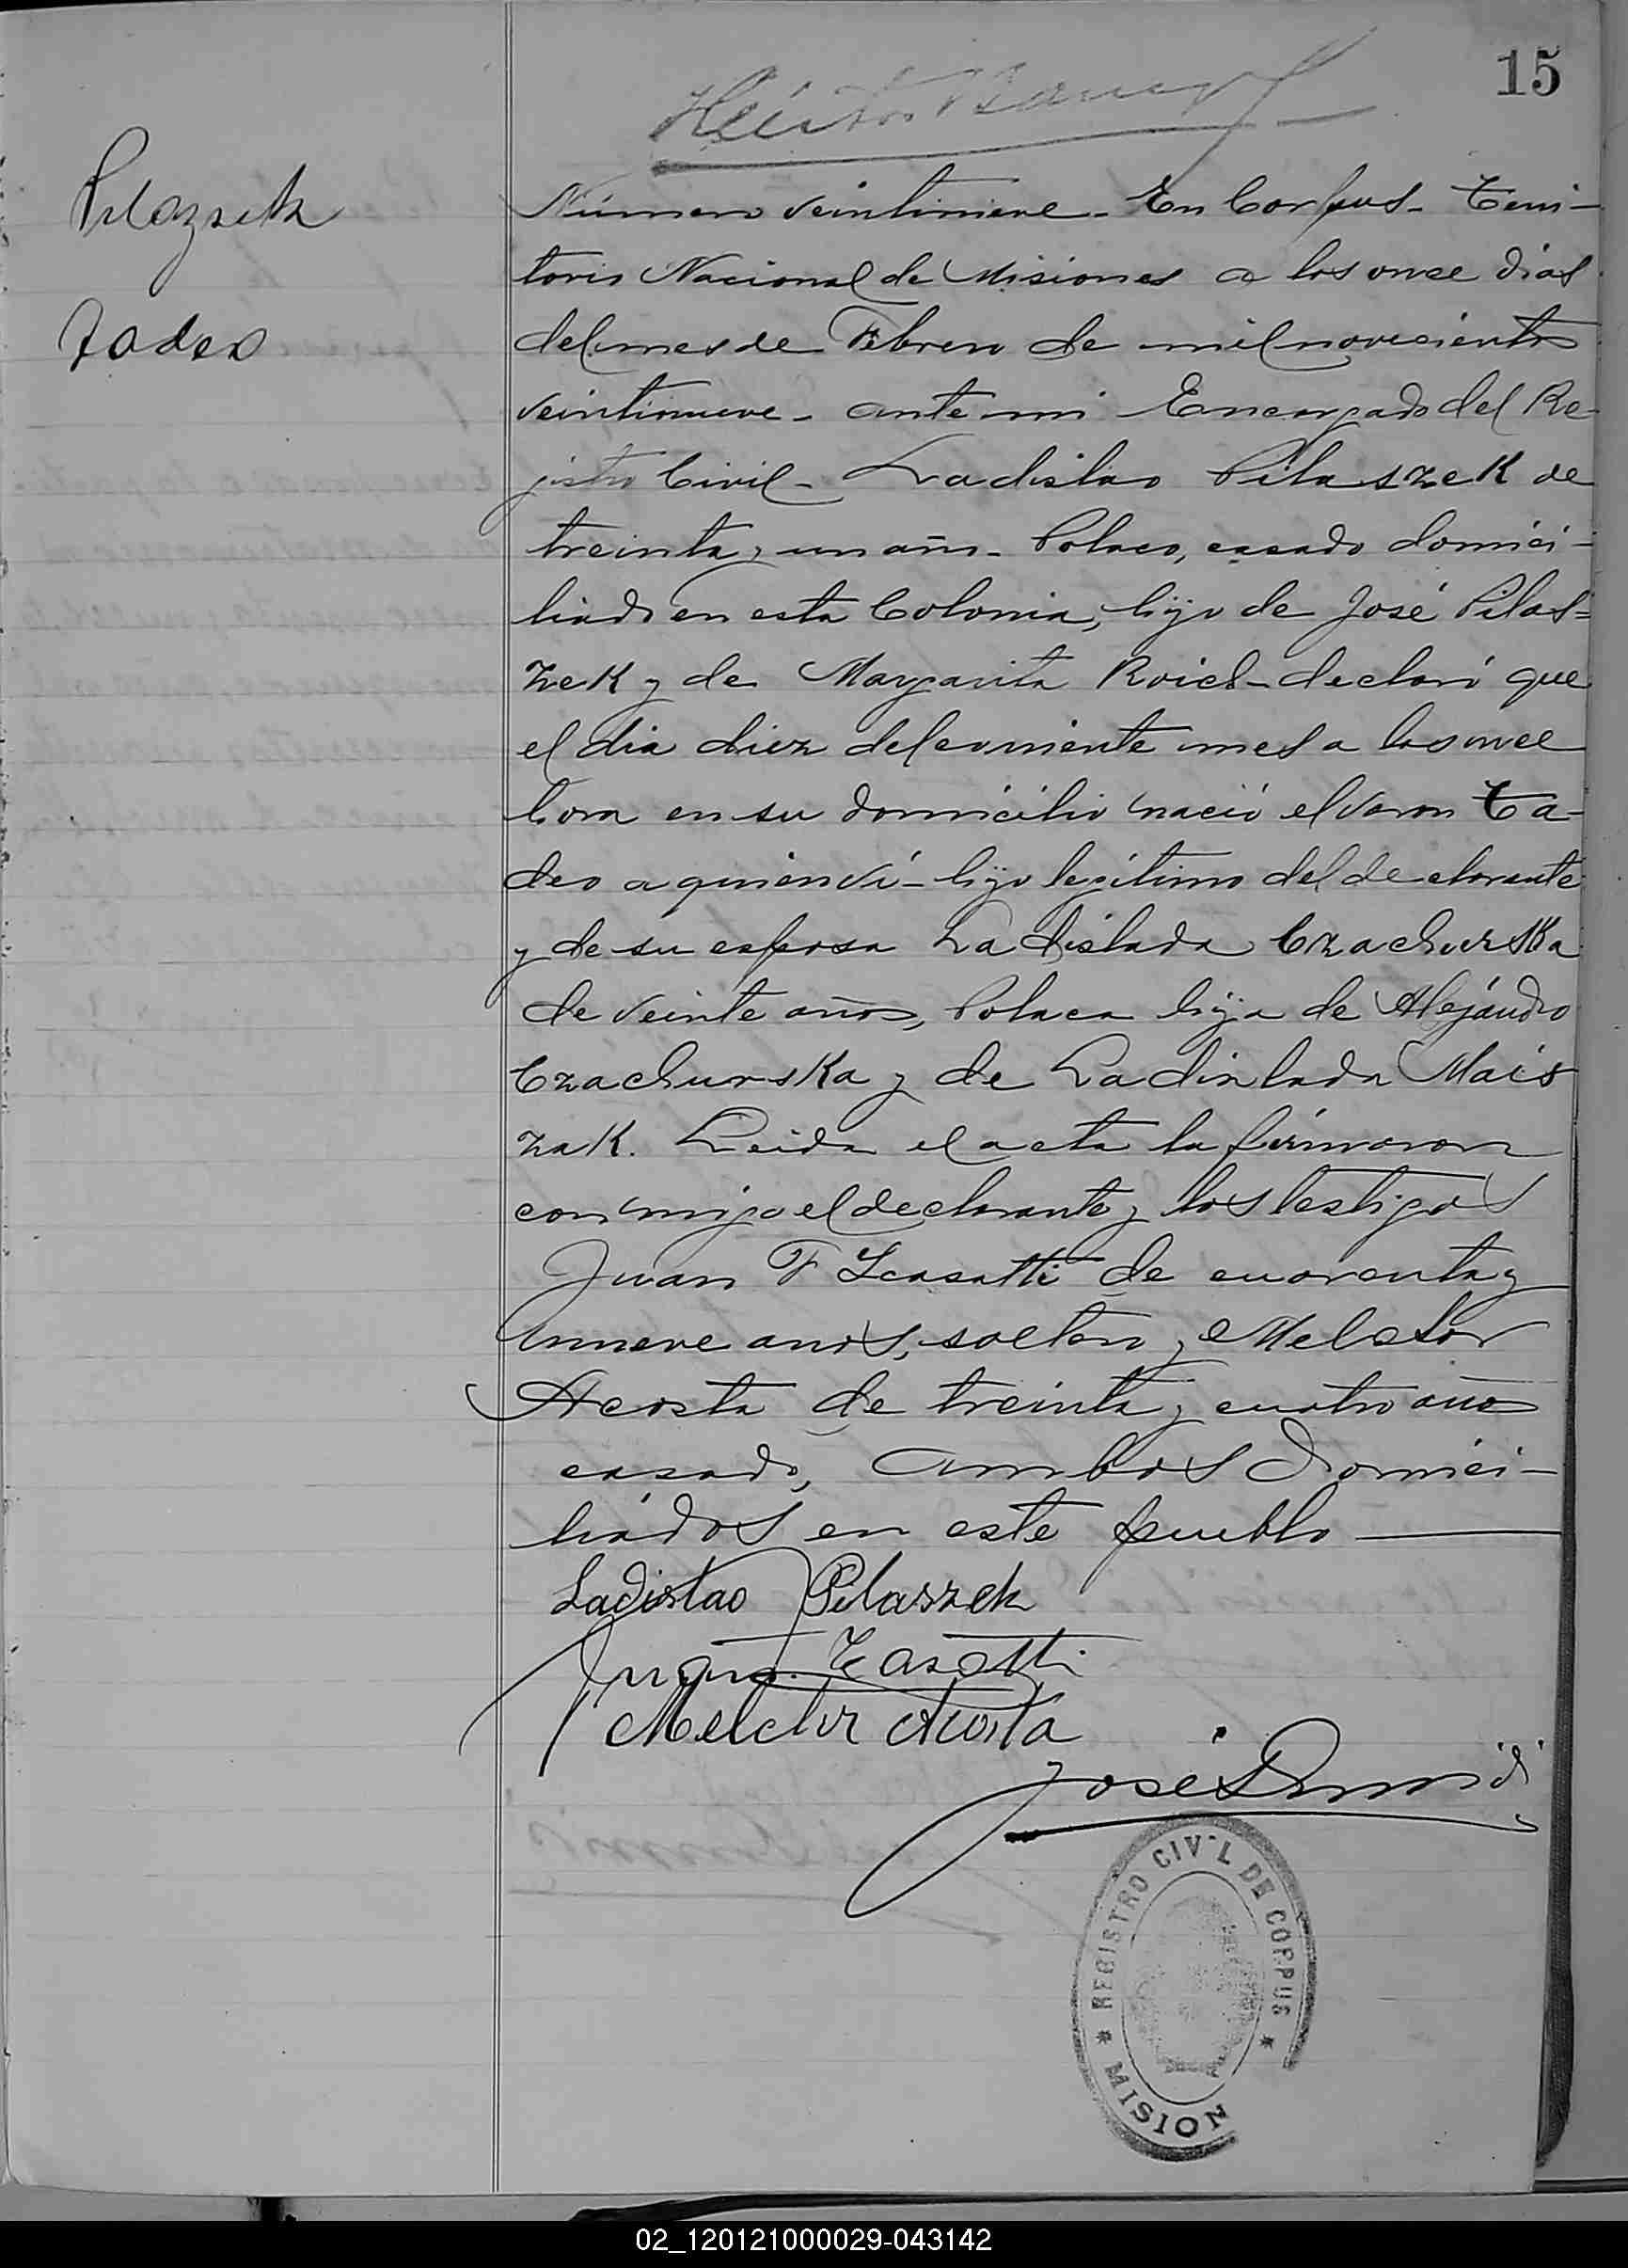 15
Pilazsek
Tadeo
Número veintinueve - En Corpus - Terri-
torio Nacional de Misiones a los once dias
del mes de Febrero de mil novecientos
veintinueve - ante mi Encargado del Re-
jistro Civil - Ladislao Pilaszek de
treinta y un años - Polaco, casado domici-
liado en esta Colonia, hijo de José Pilas=
zek y de Margarita Roich - declaró que
el dia diez del corriente mes a las once
hora en su domicilio nació el varon Ta-
deo a quien ví - hijo legítimo del declarante
y de su esposa Ladislada Czachurska
de veinte años, Polaca hija de Alejandro
Czachurska y de Ladislada Mais
zak. Leida el acta la firmaron
conmigo el declarante y los testigos
Juan F Zcasatti de cuarenta y
nueve anos, soltero y Melchor
Acosta de treinta y cuatro años
casado, ambos domici-
liados en este pueblo
Ladislao Pilaszek
Juan Casatti
Melchor Acosta
José
REGISTRO CIVIL DE CORPUS
MISION
02_120121000029-043142